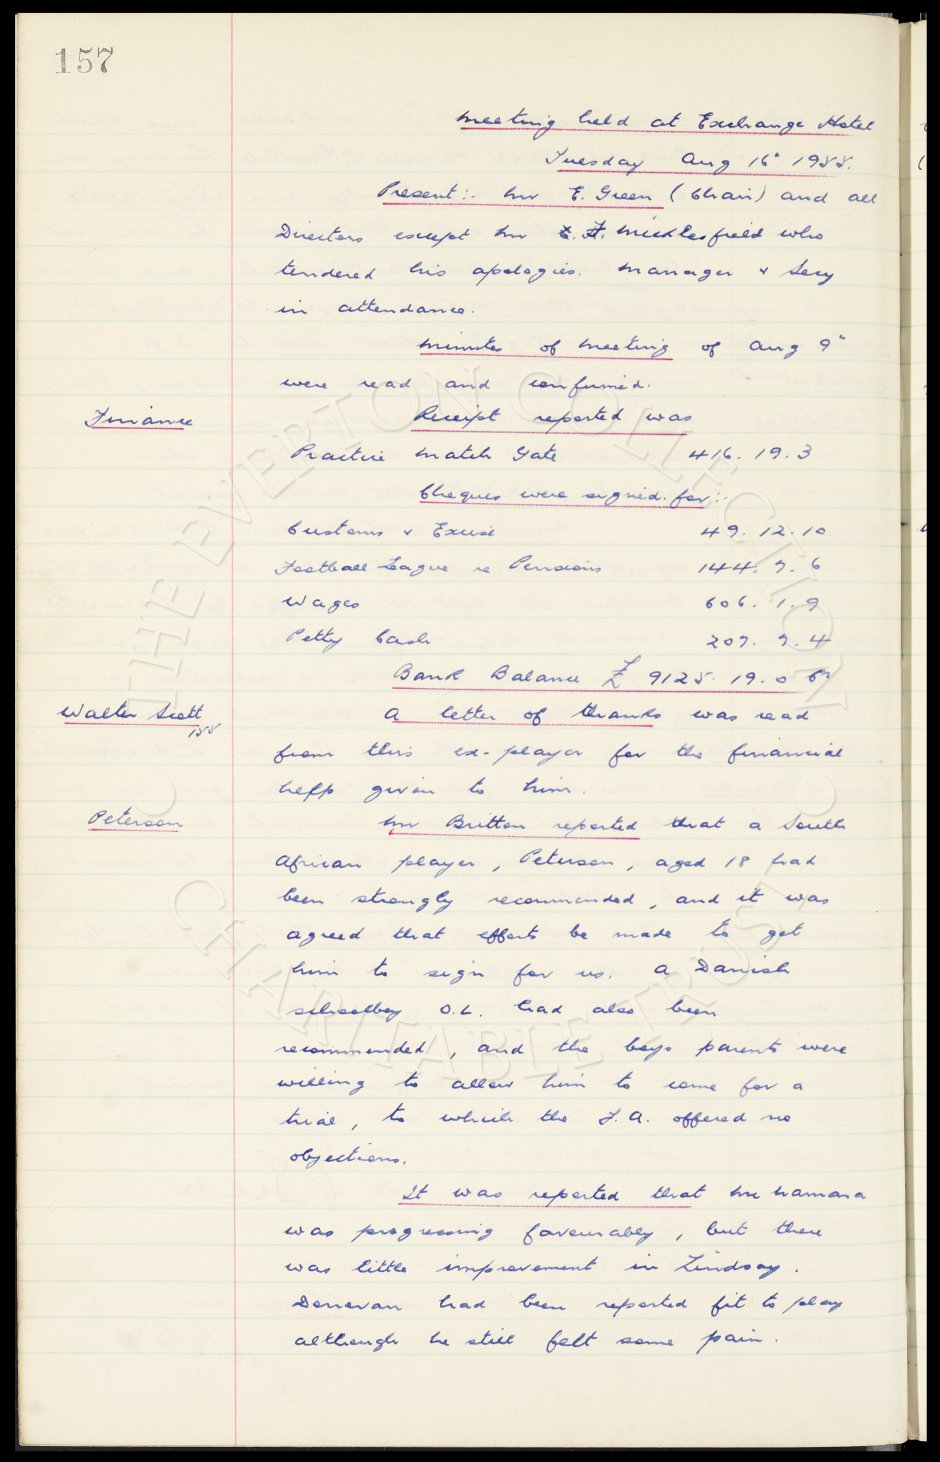 157
Meeting held at Exchange Hotel
Tuesday Aug 16" 1955.
Present:- Mr E. Green (Chair) and all
Directors except Mr C. F. Micklesfield who
tendered his apologies. Manager & Secy
in attendance.
Minutes of Meeting of Aug 9"
were read and confirmed.
Finance
Receipt reported was
Practice Match Gate 416. 19. 3
Cheques were signed for:-
Customs & Excise 49. 12. 10
Football League re Pensions 144. 7. 6
Wages 606. 1. 9
Petty Cash 207. 7. 4
Bank Balance £ 9125. 19. 0
Walter Scott
A letter of thanks was read
from this ex-player for the financial
help given to him.
Peterson
Mr Britton reported that a South
African player, Peterson, aged 18 had
been strongly recommended, and it was
agreed that efforts be made to get
him to sign for us. A Danish
schoolboy O.L. had also been
recommended, and the boys parents were
willing to allow him to come for a
trial, to which the F.A. offered no
objections.
It was reported that McNamara
was progressing favourably, but there
was little improvement in Lindsay.
Donovan had been reported fit to play
although he still felt some pain.
THE EVERTON COLLECTION
CHARITABLE TRUST